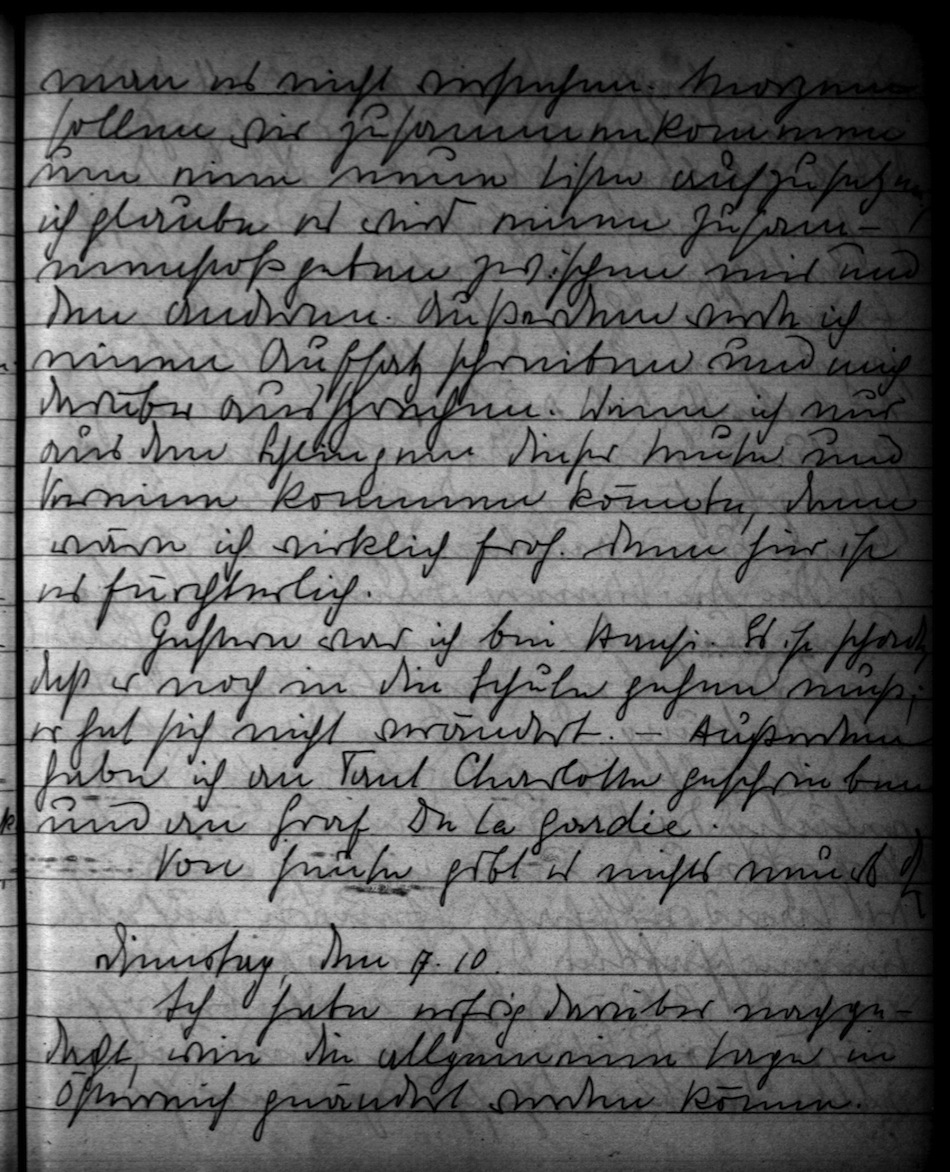 man es nicht versuchen. Morgen
sollen wir zusammenkommen
um eine neue Liste aufzusetzen
ich glaube es wird einen Zusam-
menstoß geben zwischen mir und
den anderen. Außerdem werde ich
einen Aufsatz schreiben und mich
darüber aussprechen. Wenn ich nur
aus den Schlingen dieser Leute und
Vereine kommen könnte, dann
wäre ich wirklich froh. denn hier ist
es fürchterlich.
Gestern war ich bei Hansi. Es ist schade
daß er noch in die Schule gehen muß;
er hat sich nicht verändert. – Außerdem
habe ich an Tant Charlotte geschrieben
und an Graf De la Gardie.
Von heute gibt es nichts neues
Dienstag, den 7. 10.
Ich habe eifrig darüber nachge-
dacht, wie die allgemeine Lage in
Österreich geändert werden könne.